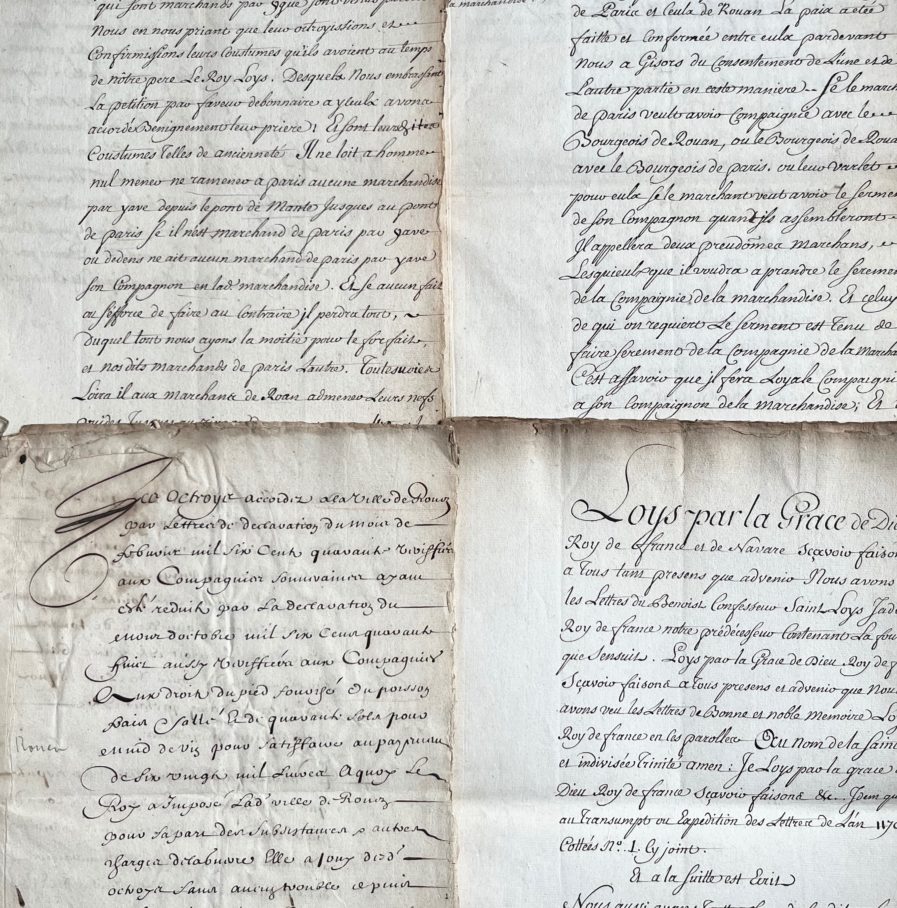 qui sont marchands par
Nous en nous priant que leur octroyissions et
Confirmissions leurs Coustumes qu'ils avoient au temps
de nôtre pere Le Roy Loys. Desquels Nous embrassant
La petition par faveur debonnaire a yceulx avons
acordé Benignement leur priere; Et sont leurs dites
Coustumes Telles de ancienneté Il ne loit a homme
nul mener ne ramener a Paris aucune marchandise
par yave depuis le pont de Mante Jusques au pont
de Paris se il n'est marchand de Paris par yave
ou dedens ne ait aucun marchand de Paris par yave
son Compagnon en lad. marchandise. Et se aucun fait
au s'éfforce de faire au Contraire il perdra tout,
duquel tout nous ayons la moitié pour le forfait,
et nos dits marchands de Paris Lautre. Toutesvoies
Loira il aux marchants de Roan admener Leurs nefs
vuides Jusques au
la marchandise
de Paris et Ceulx de Rouan La paix a eteé
faitte et Confermée entre eulx pardevant
Nous a Gisors du Consentement de L'une et de
Lautre partie en ceste maniere. Se le march
de Paris veult avoir Compagnie avec le
Bourgeois de Rouan, ou le Bourgeois de Roua
avec le Bourgeois de Paris. ou leur varlet
pour eulx se le marchant veut avoir le Serme
de son Compagnon quand ils assembleront
Il appellera deux preudomes marchans,
Lesquieulx que il voudra a prandre le Sereme
de la Compagnie de la marchandise. Et celuy
de qui on requiert Le Serment est Tenu de
faire Serement de la Compagnie de la Marcha
C'est assavoir que il fera Loyale Compaigni
a son Compagnon de la marchandise; Et
Les Octroys accordez a la Ville de Rouen
par Lettres de declaration du mois de
febvrier mil six Cent quarante
aux Compagnies Souveraines ayant
esté reduit par La declaration du
mois d'octobre mil six Cens quarante
huict aussy aux Compagnies
Aux droits du pied fourché Du poisson
frais Sallé Et de quarante Sols pour
muid de vin pour Satisfaire au payement
de six vingt mil Livres A quoy Le
Roy a Imposé Lad. ville de Rouen
pour sa part des Subsistances & autres
Elle a Jouy desd.
octroys Sans aucun trouble
Rouen
Loys par la Grace de Die
Roy de ffrance et de Navare Sçavoir faison
a Tous tant presens que advenir Nous avons
les Lettres du Benoist Confesseur Saint Loys Jad
Roy de france notre prédécesseur Contenant La fo
que Sensuit. Loys par la Grace de Dieu Roy de f
Sçavoir faisons a Tous presens et advenir que Nou
avons veu les Lettres de Bonne et noble Memoire Lo
Roy de france en ces parolles Au nom de la Sain
et indivisée Trinité amen: Je Loys par la grace
Dieu Roy de france Sçavoir faisons &c. Idem qu
au Transumpt ou Expedition des Lettres de L'an 1170
Cottées N.º 1. Cy joint.
Et a la Suitte est Ecrit
Nous aussi